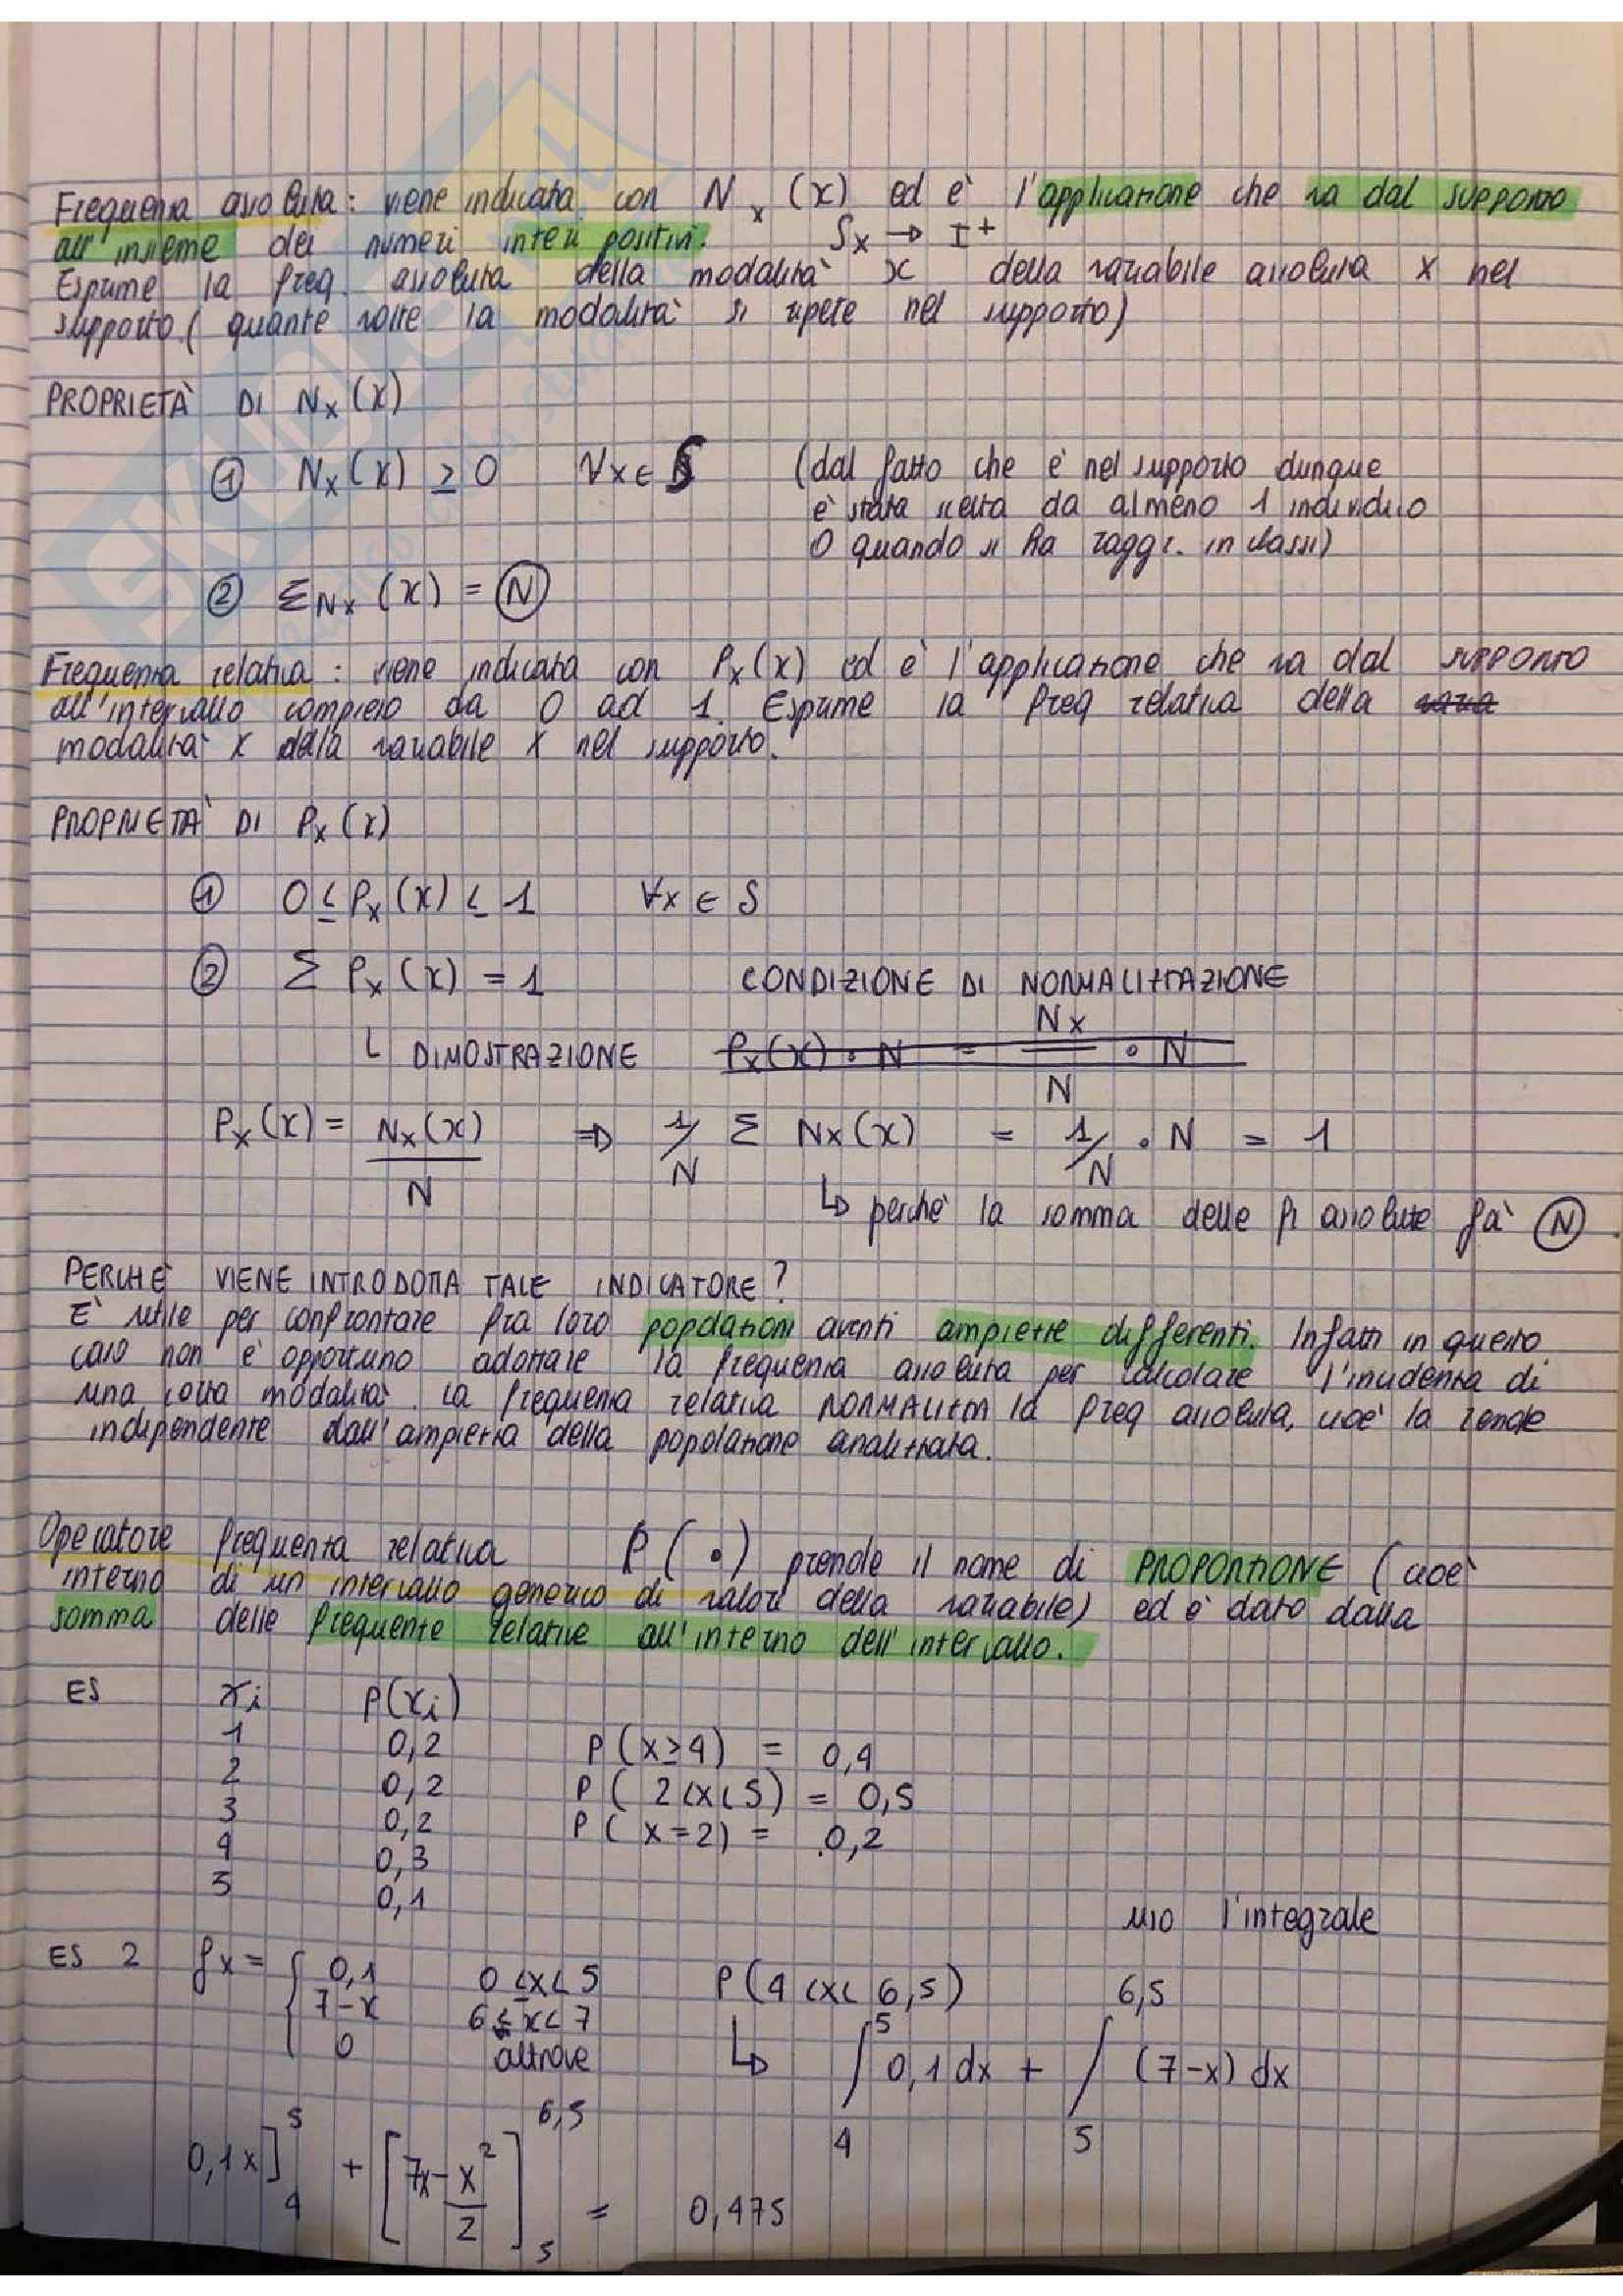 Frequenza assoluta: viene indicata con Nx (x) ed è l'applicazione che va dal supporto
all'insieme dei numeri interi positivi. Sx → I+
Esprime la freq. assoluta della modalità x della variabile assoluta X nel
supporto. (quante volte la modalità si ripete nel supporto)
PROPRIETÀ DI Nx (x)
① Nx (x) ≥ 0 ∀x ∈ S (dal fatto che è nel supporto dunque
è stata scelta da almeno 1 individuo
0 quando si ha raggr. in classi)
② ΣNx (x) = N
Frequenza relativa: viene indicata con Px (x) ed è l'applicazione che va dal supporto
all'intervallo compreso da 0 ad 1. Esprime la freq relativa della varia
modalità x della variabile X nel supporto.
PROPRIETÀ DI Px (x)
① 0 ≤ Px (x) ≤ 1 ∀x ∈ S
② Σ Px (x) = 1 CONDIZIONE DI NORMALIZZAZIONE
└ DIMOSTRAZIONE Px(x) • N = Nx/N • N
Px (x) = Nx (x)/N ⇒ 1/N Σ Nx (x) = 1/N • N = 1
↳ perchè la somma delle fr assolute fà N.
PERCHÈ VIENE INTRODOTTA TALE INDICATORE?
È utile per confrontare fra loro popolazioni aventi ampiezze differenti. Infatti in questo
caso non è opportuno adottare la frequenza assoluta per calcolare l'incidenza di
una certa modalità. La frequenza relativa NORMALIZZA la freq assoluta, cioè la rende
indipendente dall'ampiezza della popolazione analizzata.
Operatore frequenza relativa P ( • ) prende il nome di PROPORZIONE (cioè
interno di un intervallo generico di valori della variabile) ed è dato dalla
somma delle frequenze relative all'interno dell'intervallo.
ES xi P(xi)
1 0,2 P (x≥4) = 0,4
2 0,2 P ( 2<x<5) = 0,5
3 0,2 P ( x=2) = 0,2
4 0,3
5 0,1
uso l'integrale
ES 2 fx = { 0,1 0≤x<5 P(4<x<6,5)
7-x 6≤x<7
0 altrove
↳ ∫₄⁵ 0,1 dx + ∫₅^6,5 (7-x) dx
0,1x]₄⁵ + [7x - x²/2]₅^6,5 = 0,475